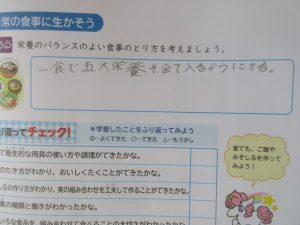 常の食事に生かそう
栄養のバランスのよい食事のとり方を考えましょう。
一食で五大栄養を全て入るようにする。
り返ってチェック!
*学習したことをふり返ってみよう
◎…よくできた ○…できた △…もう少し
て衛生的な用具の使い方や調理ができたかな。
のたき方がわかり、おいしくたくことができたかな。
しるの作り方がわかり、実の組み合わせを工夫して作ることができたかな。
素の種類と働きがわかったかな。
いろな食品を、組み合わせて食べることの大切さがわかったかな。
家でも、ご飯や
みそしるを作って
みよう!